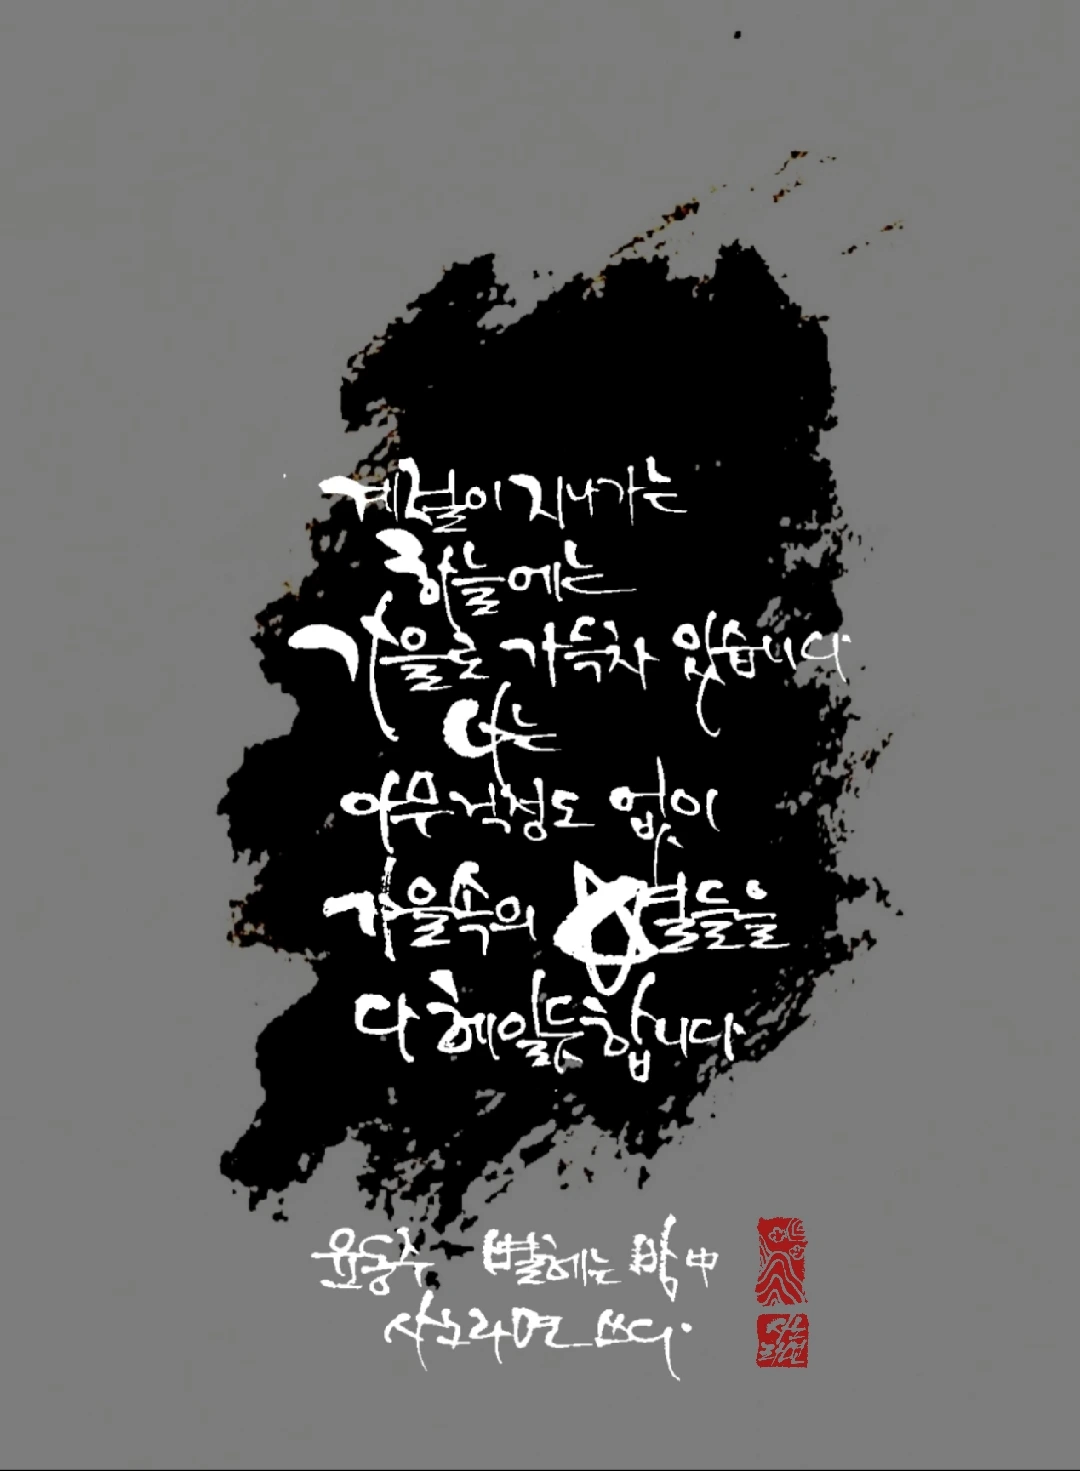 계절이 지나가는
하늘에는
가을로 가득차 있습니다
나는
아무 걱정도 없이
가을속의 별들을
다 헤일듯합니다
윤동주 별헤는 밤 中
사노라면 쓰다.
사노
라면